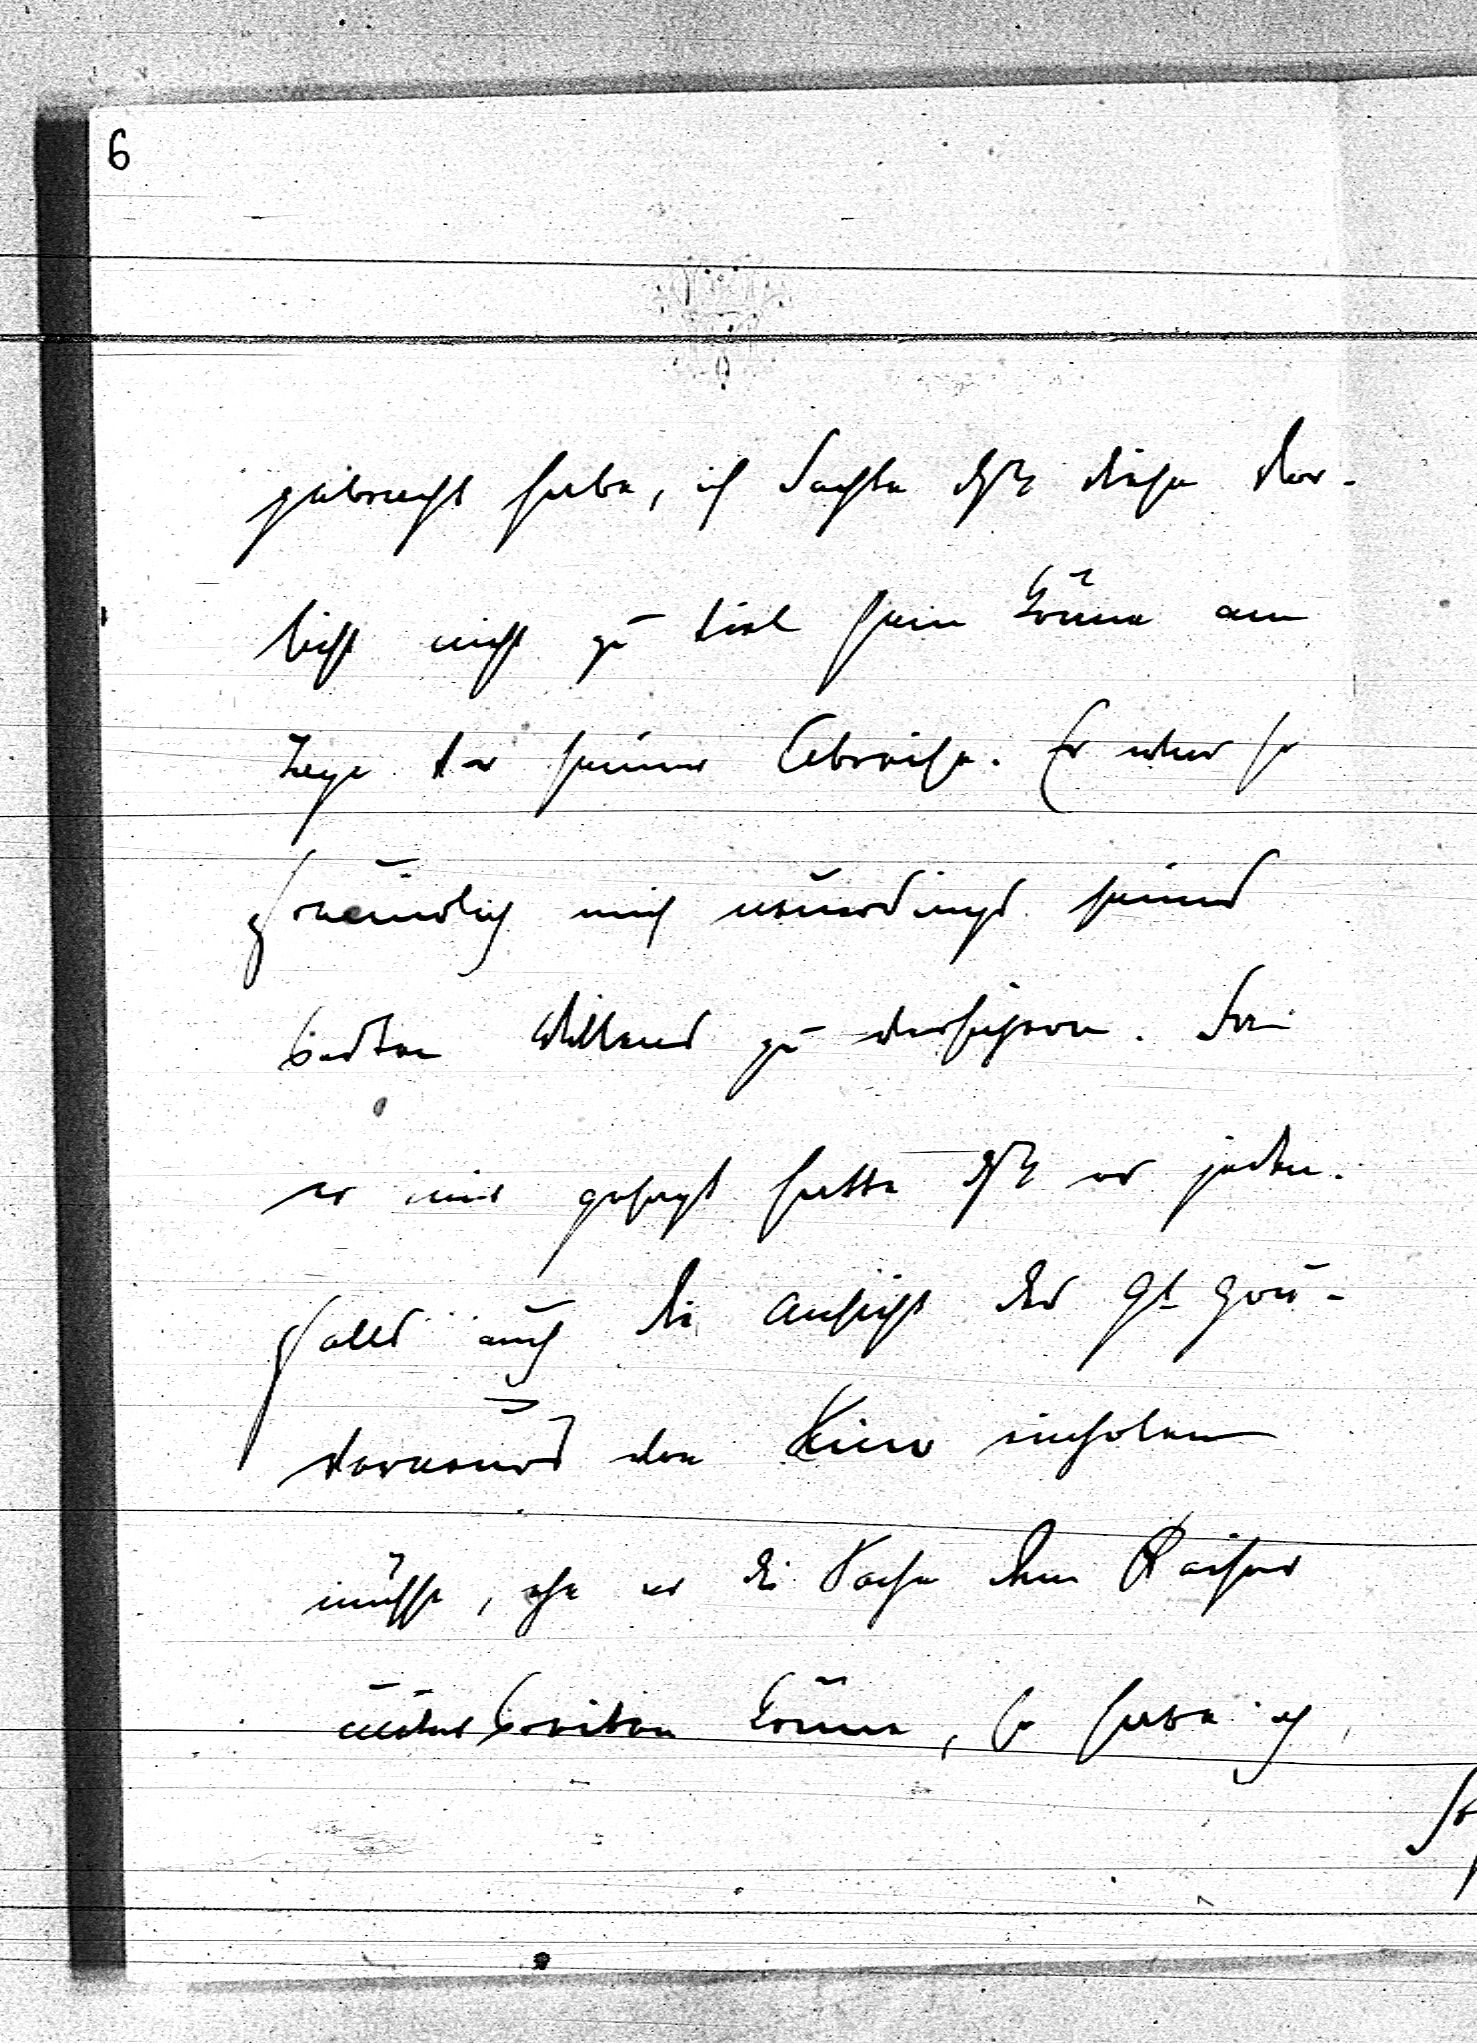 6
gebracht habe, ich dachte dß diese Ver-
licht nicht zu viel sein könne am
Tage vor seiner Abreise. Er war so
freundlich mich neuerdings seines
besten Willens zu versichern. Da
er mir gesagt hatte dß er jeden-
falls auch die Ansicht des
den Kiew einholen
müsse, ehe er die Sache dem Kaiser
unterbreiten könne, so habe ich